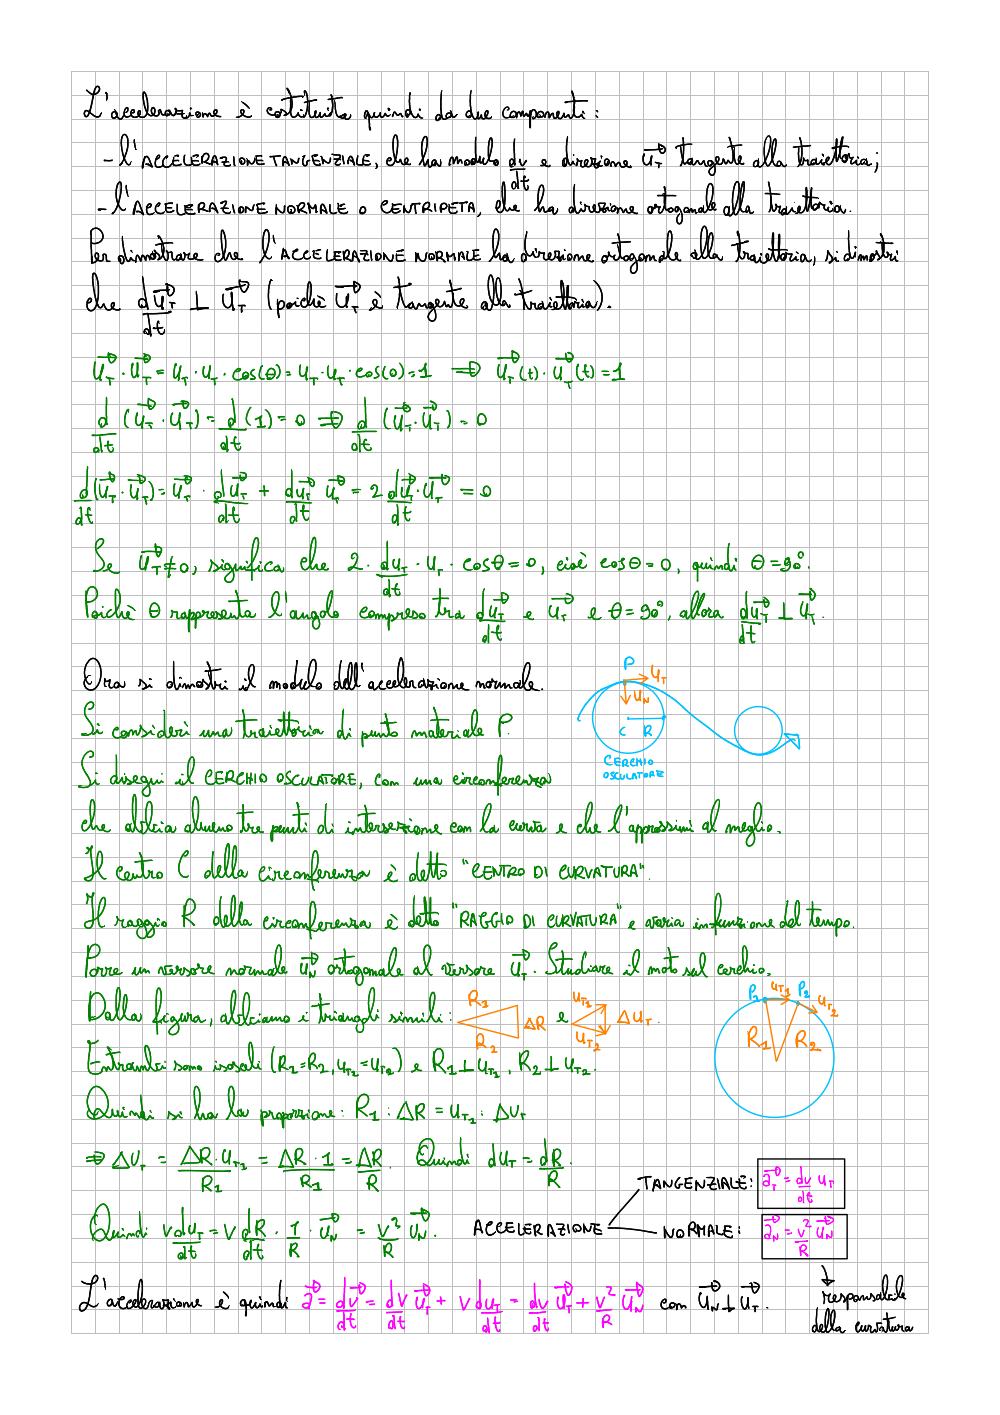 L'accelerazione è costituita quindi da due componenti:
- l'ACCELERAZIONE TANGENZIALE, che ha modulo dv/dt e direzione u⃗_T tangente alla traiettoria;
- l'ACCELERAZIONE NORMALE O CENTRIPETA, che ha direzione ortogonale alla traiettoria.
Per dimostrare che l'ACCELERAZIONE NORMALE ha direzione ortogonale alla traiettoria, si dimostri
che du⃗_T/dt ⊥ u⃗_T (poichè u⃗_T è tangente alla traiettoria).
u⃗_T · u⃗_T = u_T · u_T · cos(θ) = u_T · u_T · cos(0) = 1 ⇒ u⃗_T(t) · u⃗_T(t) = 1
d/dt (u⃗_T · u⃗_T) = d/dt (1) = 0 ⇒ d/dt (u⃗_T · u⃗_T) = 0
d/dt (u⃗_T · u⃗_T) = u⃗_T · du⃗_T/dt + du⃗_T/dt u⃗_T = 2 du⃗_T/dt · u⃗_T = 0
Se u⃗_T ≠ 0, significa che 2 · du_T/dt · u_T · cosθ = 0, cioè cosθ = 0, quindi θ = 90°.
Poichè θ rappresenta l'angolo compreso tra du⃗_T/dt e u⃗_T e θ = 90°, allora du⃗_T/dt ⊥ u⃗_T.
Ora si dimostri il modulo dell'accelerazione normale.
P
u_T
u_N
C R
CERCHIO
OSCULATORE
Si consideri una traiettoria di punto materiale P.
Si disegni il CERCHIO OSCULATORE, con una circonferenza
che abbia almeno tre punti di intersezione con la curva e che l'approssimi al meglio.
Il centro C della circonferenza è detto "CENTRO DI CURVATURA".
Il raggio R della circonferenza è detto "RAGGIO DI CURVATURA" e varia in funzione del tempo.
Porre un versore normale u⃗_N ortogonale al versore u⃗_T. Studiare il moto sul cerchio.
Dalla figura, abbiamo i triangoli simili: R_1 R_2 ΔR e u_T1 u_T2 Δu_T.
P_1 u_T1 P_2 u_T2
R_1 R_2
Entrambi sono isosceli (R_1=R_2, u_T1=u_T2) e R_1 ⊥ u_T1, R_2 ⊥ u_T2.
Quindi si ha la proporzione: R_1 : ΔR = u_T1 : Δu_T
⇒ Δu_T = ΔR · u_T1/R_1 = ΔR · 1/R_1 = ΔR/R. Quindi du_T = dR/R.
Quindi v du_T/dt = v dR/dt · 1/R · u⃗_N = v²/R u⃗_N.
ACCELERAZIONE
TANGENZIALE: a⃗_T = dv/dt u_T
NORMALE: a⃗_N = v²/R u⃗_N
responsabile
della curvatura
L'accelerazione è quindi a⃗ = dv⃗/dt = dv/dt u⃗_T + v du_T/dt = dv/dt u⃗_T + v²/R u⃗_N con u⃗_N ⊥ u⃗_T.